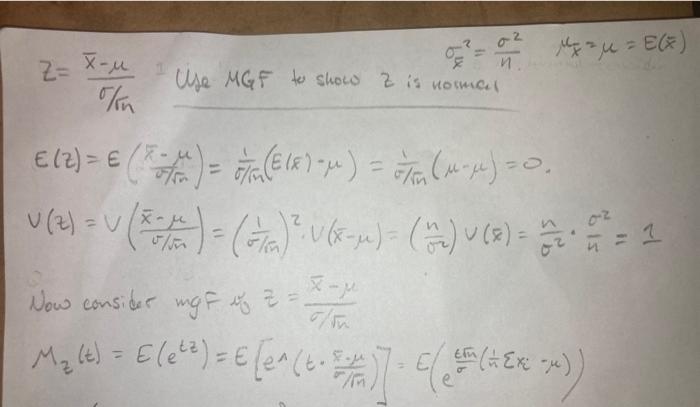 Z = (x̄-μ)/(σ/√n) σ²_x̄ = σ²/n. μ_x̄ = μ = E(x̄)
Use MGF to show Z is normal
E(Z) = E((x̄-μ)/(σ/√n)) = 1/(σ/√n) (E(x̄)-μ) = 1/(σ/√n) (μ-μ) = 0.
V(Z) = V((x̄-μ)/(σ/√n)) = (1/(σ/√n))². V(x̄-μ) = (n/σ²) V(x̄) = n/σ² · σ²/n = 1
Now consider mgf of Z = (x̄-μ)/(σ/√n)
M_Z(t) = E(e^{tZ}) = E[e^(t · (x̄-μ)/(σ/√n))] = E(e^{t√n/σ (1/n Σxi -μ)})